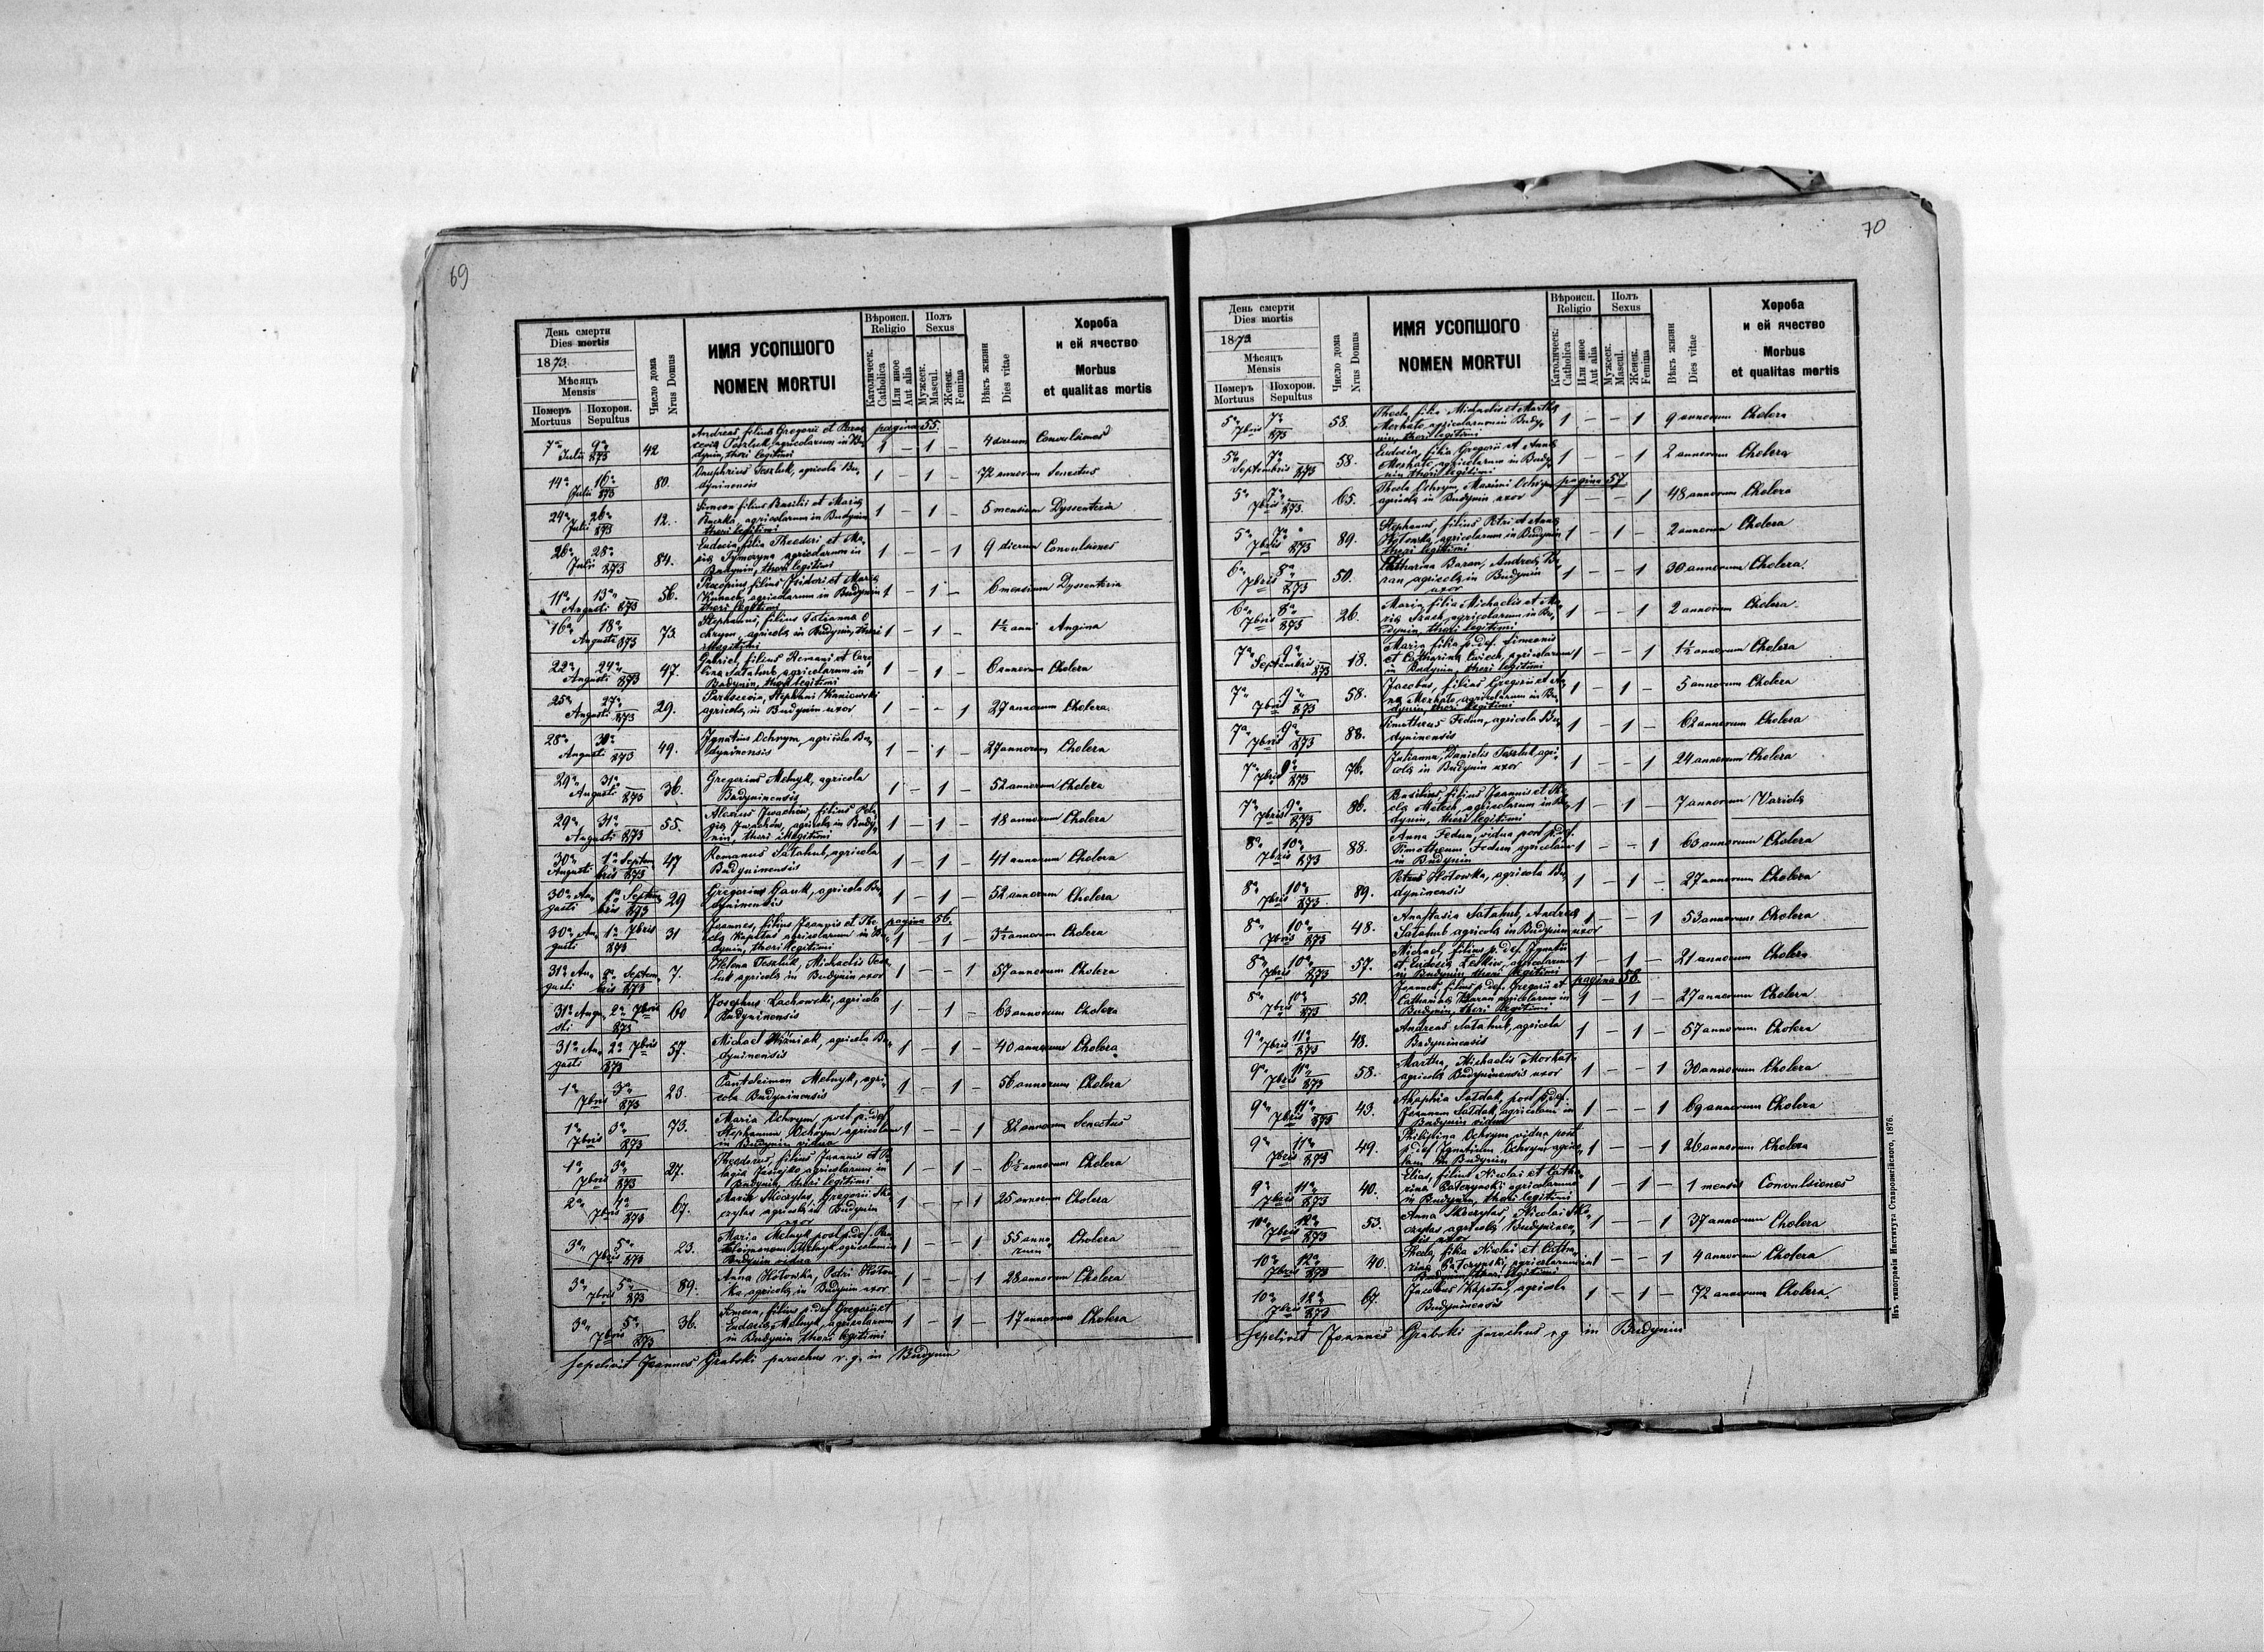 69
День смерти
Dies mortis
1873.
Мѣсяць
Mensis
Померъ Mortuus
Похорон. Sepultus
Число дома
Nrus Domus
ИМЯ УСОПШОГО
NOMEN MORTUI
Вѣроисп.
Religio
Католическ.
Catholica
Или иное
Aut alia
Полъ
Sexus
Мужеск.
Mascul.
Женск.
Femina
Вѣкъ жизни
Dies vitae
Хороба
и ей ячество
Morbus
et qualitas mortis
pagina 55.
7ª Julii 9ª 873 42 Andreas filius Gregorii et Paras
cevia Teszluk, agricolarum in Bu
dynin, thori legitimi 1 – 1 – 4 dierum Convulsiones
14ª Julii 16ª 873 80. Onuphrius Teszluk, agricola Bu,
dyninensis 1 – 1 – 72 annorum Senectus
24ª Julii 26ª 873 12. Simeon filius Basilii et Maria
agricolarum in Budynin
thori legitimi 1 – 1 – 5 mensium Dyssenteria
26ª Julii 28ª 873 84. Eudocia filia Theodori et Ma,
ria agricolarum in
Budynin, thori legitimi 1 – – 1 9 dierum Convulsiones
11ª Augusti 13ª 873 56. Procopius, filius Isidori et Maria
Kunach, agricolarum in Budynin
thori legitimi 1 – 1 – 6 mensium Dyssenteria
16ª Augusti 18ª 873 73. Stephanus, filius Tatianna O
chrym, agricola in Budynin, thori
illegitimi 1 – 1 – 1½ anni Angina
22ª Augusti 24ª 873 47. Gabriel, filius Romani et
Satahub agricolarum in
Budynin, thori legitimi 1 – 1 – 6 annorum Cholera
25ª Augusti 27ª 873 29. Parascevia, Stephani Kaniowski
agricola in Budynin uxor 1 – – 1 27 annorum Cholera
28ª Augusti 30ª 873 49. Ignatius Ochrym, agricola Bu,
dyninensis 1 – 1 – 27 annorum Cholera
29ª Augusti 31ª 873 36. Gregorius Melnyk, agricola
Budyninensis 1 – 1 – 52 annorum Cholera
29ª Augusti 31ª 873 55. Alexius Iwachów, filius Pela
gia Iwachów, agricola in Budy,
nin, thori illegitimi 1 – 1 – 18 annorum Cholera
30ª Augusti 1ª Septem
bris 873 47 Romanus Satahub, agricola
Budyninensis 1 – 1 – 41 annorum Cholera
30ª Au,
gusti 1ª Septem
bris 873 29 Gregorius Gauk, agricola Bu
dyninensis 1 – 1 – 52 annorum Cholera
pagina 56.
30ª Au,
gusti 1ª 7bris 873 31 Joannes, filius Joannis et The
cla Kapitas agricolarum in Bu,
dynin, thori legitimi 1 – 1 – 3½ annorum Cholera
31ª Au,
gusti 2ª Septem
bris 873 7. Helena Teszluk, Michaelis Tesz
luk agricola in Budynin uxor 1 – – 1 57 annorum Cholera
31ª Augu
sti 2ª 7bris 873 60 Josephus Lachowski, agricola
Budyninensis 1 – 1 – 63 annorum Cholera
31ª Au,
gusti 2ª 7bris 873 57. Michael Woźniak, agricola Bu,
dyninensis 1 – 1 – 40 annorum Cholera
1ª 7bris 3ª 873 23. Panteleimon Melnyk, agri,
cola Budyninensis 1 – 1 – 56 annorum Cholera
1ª 7bris 3ª 873 73. Maria Ochrym, post p. def.
Stephanum Ochrym agricolam
in Budynin vidua 1 – – 1 82 annorum Senectus
1ª 7bris 3ª 873 27. Theodorus, filius Joannis et Pe
lagia agricolarum in
Budynin, thori legitimi 1 – 1 – 6½ annorum Cholera
2ª 7bris 4ª 873 67. Maria Skoczylas, Gregorii Sko
czylas agricola in Budynin
uxor 1 – – 1 25 annorum Cholera
3ª 7bris 5ª 873 23. Maria Melnyk post p. def. Pan
teleimonem Melnyk agricolam in
Budynin vidua 1 – – 1 55 anno
rum Cholera
3ª 7bris 5ª 873 89. Anna Kotowka, Petri Kotow
ka agricola in Budynin uxor 1 – – 1 28 annorum Cholera
3ª 7bris 5ª 873 36. filius p. def. Gregorii et
Eudocia Melnyk, agricolarum
in Budynin thori legitimi 1 – 1 – 17 annorum Cholera
Sepelivit Joannes Grabski parochus r. g. in Budynin
70
День смерти
Dies mortis
1873
Мѣсяць
Mensis
Померъ Mortuus
Похорон. Sepultus
Число дома
Nrus Domus
ИМЯ УСОПШОГО
NOMEN MORTUI
Вѣроисп.
Religio
Католическ.
Catholica
Или иное
Aut alia
Полъ
Sexus
Мужеск.
Mascul.
Женск.
Femina
Вѣкъ жизни
Dies vitae
Хороба
и ей ячество
Morbus
et qualitas mortis
5ª 7bris 7ª 873 58. Thecla, filia Michaelis et Martha
Morhato, agricolarum in Budy,
nin, thori legitimi 1 – – 1 9 annorum Cholera
5ª Septembris 7ª 873 58. Eudocia, filia Gregorii et Anna
Morhato, agricolarum in Budy
nin thori legitimi 1 – – 1 2 annorum Cholera
pagina 57
5ª 7bris 7ª 873 65. Thecla Ochrym, Maximi Ochrym
agricola in Budynin uxor 1 – – 1 48 annorum Cholera
5ª 7bris 7ª 873 89. Stephanus, filius Petri et Anna
Kotowka, agricolarum in Budynin
thori legitimi 1 – 1 – 2 annorum Cholera
6ª 7bris 8ª 873 50. Catharina Baran, Andrea Ba,
ran agricola in Budynin
uxor 1 – – 1 30 annorum Cholera
6ª 7bris 8ª 873 26. Maria, filia Michaelis et Ma,
ria agricolarum in Bu,
dynin, thori legitimi 1 – – 1 2 annorum Cholera
7ª Septembris 9ª 873 18. Maria filia p. def. Simeonis
et Catharina agricolarum
in Budynin, thori legitimi 1 – – 1 1½ annorum Cholera
7ª 7bris 9ª 873 58. Jacobus, filius Gregorii et An
na Morhato, agricolarum in Bu
dynin, thori legitimi 1 – 1 – 5 annorum Cholera
7ª 7bris 9ª 873 88. Timotheus Fedun, agricola Bu,
dyninensis 1 – 1 – 62 annorum Cholera
7ª 7bris 9ª 873 76. Julianna, Danielis Teszluk agri,
cola in Budynin uxor 1 – – 1 24 annorum Cholera
7ª 7bris 9ª 873 86. Basilius, filius Joannis et The
cla agricolarum in Bu
dynin, thori legitimi 1 – 1 – 7 annorum Variola
8ª 7bris 10ª 873 88. Anna Fedun, vidua post p. def.
Timotheum Fedun agricolam
in Budynin 1 – – 1 63 annorum Cholera
8ª 7bris 10ª 873 89. Petrus Kotowka, agricola Bu,
dyninensis 1 – 1 – 27 annorum Cholera
8ª 7bris 10ª 873 48. Anastasia Satahub, Andrea
Satahub agricola in Budynin uxor 1 – – 1 53 annorum Cholera
8ª 7bris 10ª 873 57. Michael, filius p. def. Ignatii
et Eudocia agricolarum
in Budynin, thori legitimi 1 – 1 – 21 annorum Cholera
pagina 58.
8ª 7bris 10ª 873 50. Joannes, filius p. def. Gregorii et
Catharina Baran agricolarum in
Budynin, thori legitimi 1 – 1 – 27 annorum Cholera
9ª 7bris 11ª 873 48. Andreas Satahub, agricola
Budyninensis 1 – 1 – 57 annorum Cholera
9ª 7bris 11ª 873 58. Martha, Michaelis Morhat,
agricola Budyninensis uxor 1 – – 1 30 annorum Cholera
9ª 7bris 11ª 873 43. Ahaphia Satdak, post p. def.
Joannem Satdak, agricolam in
Budynin vidua 1 – – 1 69 annorum Cholera
9ª 7bris 11ª 873 49. Philippina Ochrym vidua post
p. def. Ignatium Ochrym agrico,
lam in Budynin 1 – – 1 26 annorum Cholera
9ª 7bris 11ª 873 40. Elias, filius Nicolai et Catha,
rina agricolarum
in Budynin, thori legitimi 1 – 1 – 1 mensis Convulsiones
10ª 7bris 12ª 873 53. Anna Skoczylas, Nicolai Sko,
czylas agricola Budyninen,
sis uxor 1 – – 1 37 annorum Cholera
10ª 7bris 12ª 873 40. Thecla, filia Nicolai et Catha,
rina agricolarum in
Budynin, thori legitimi 1 – – 1 4 annorum Cholera
10ª 7bris 12ª 873 67. Jacobus Kapitas, agricola
Budyninensis 1 – 1 – 72 annorum Cholera
Sepelivit Joannes Grabski parochus r. g. in Budynin
Изъ типографіи Института Ставропійского, 1876.